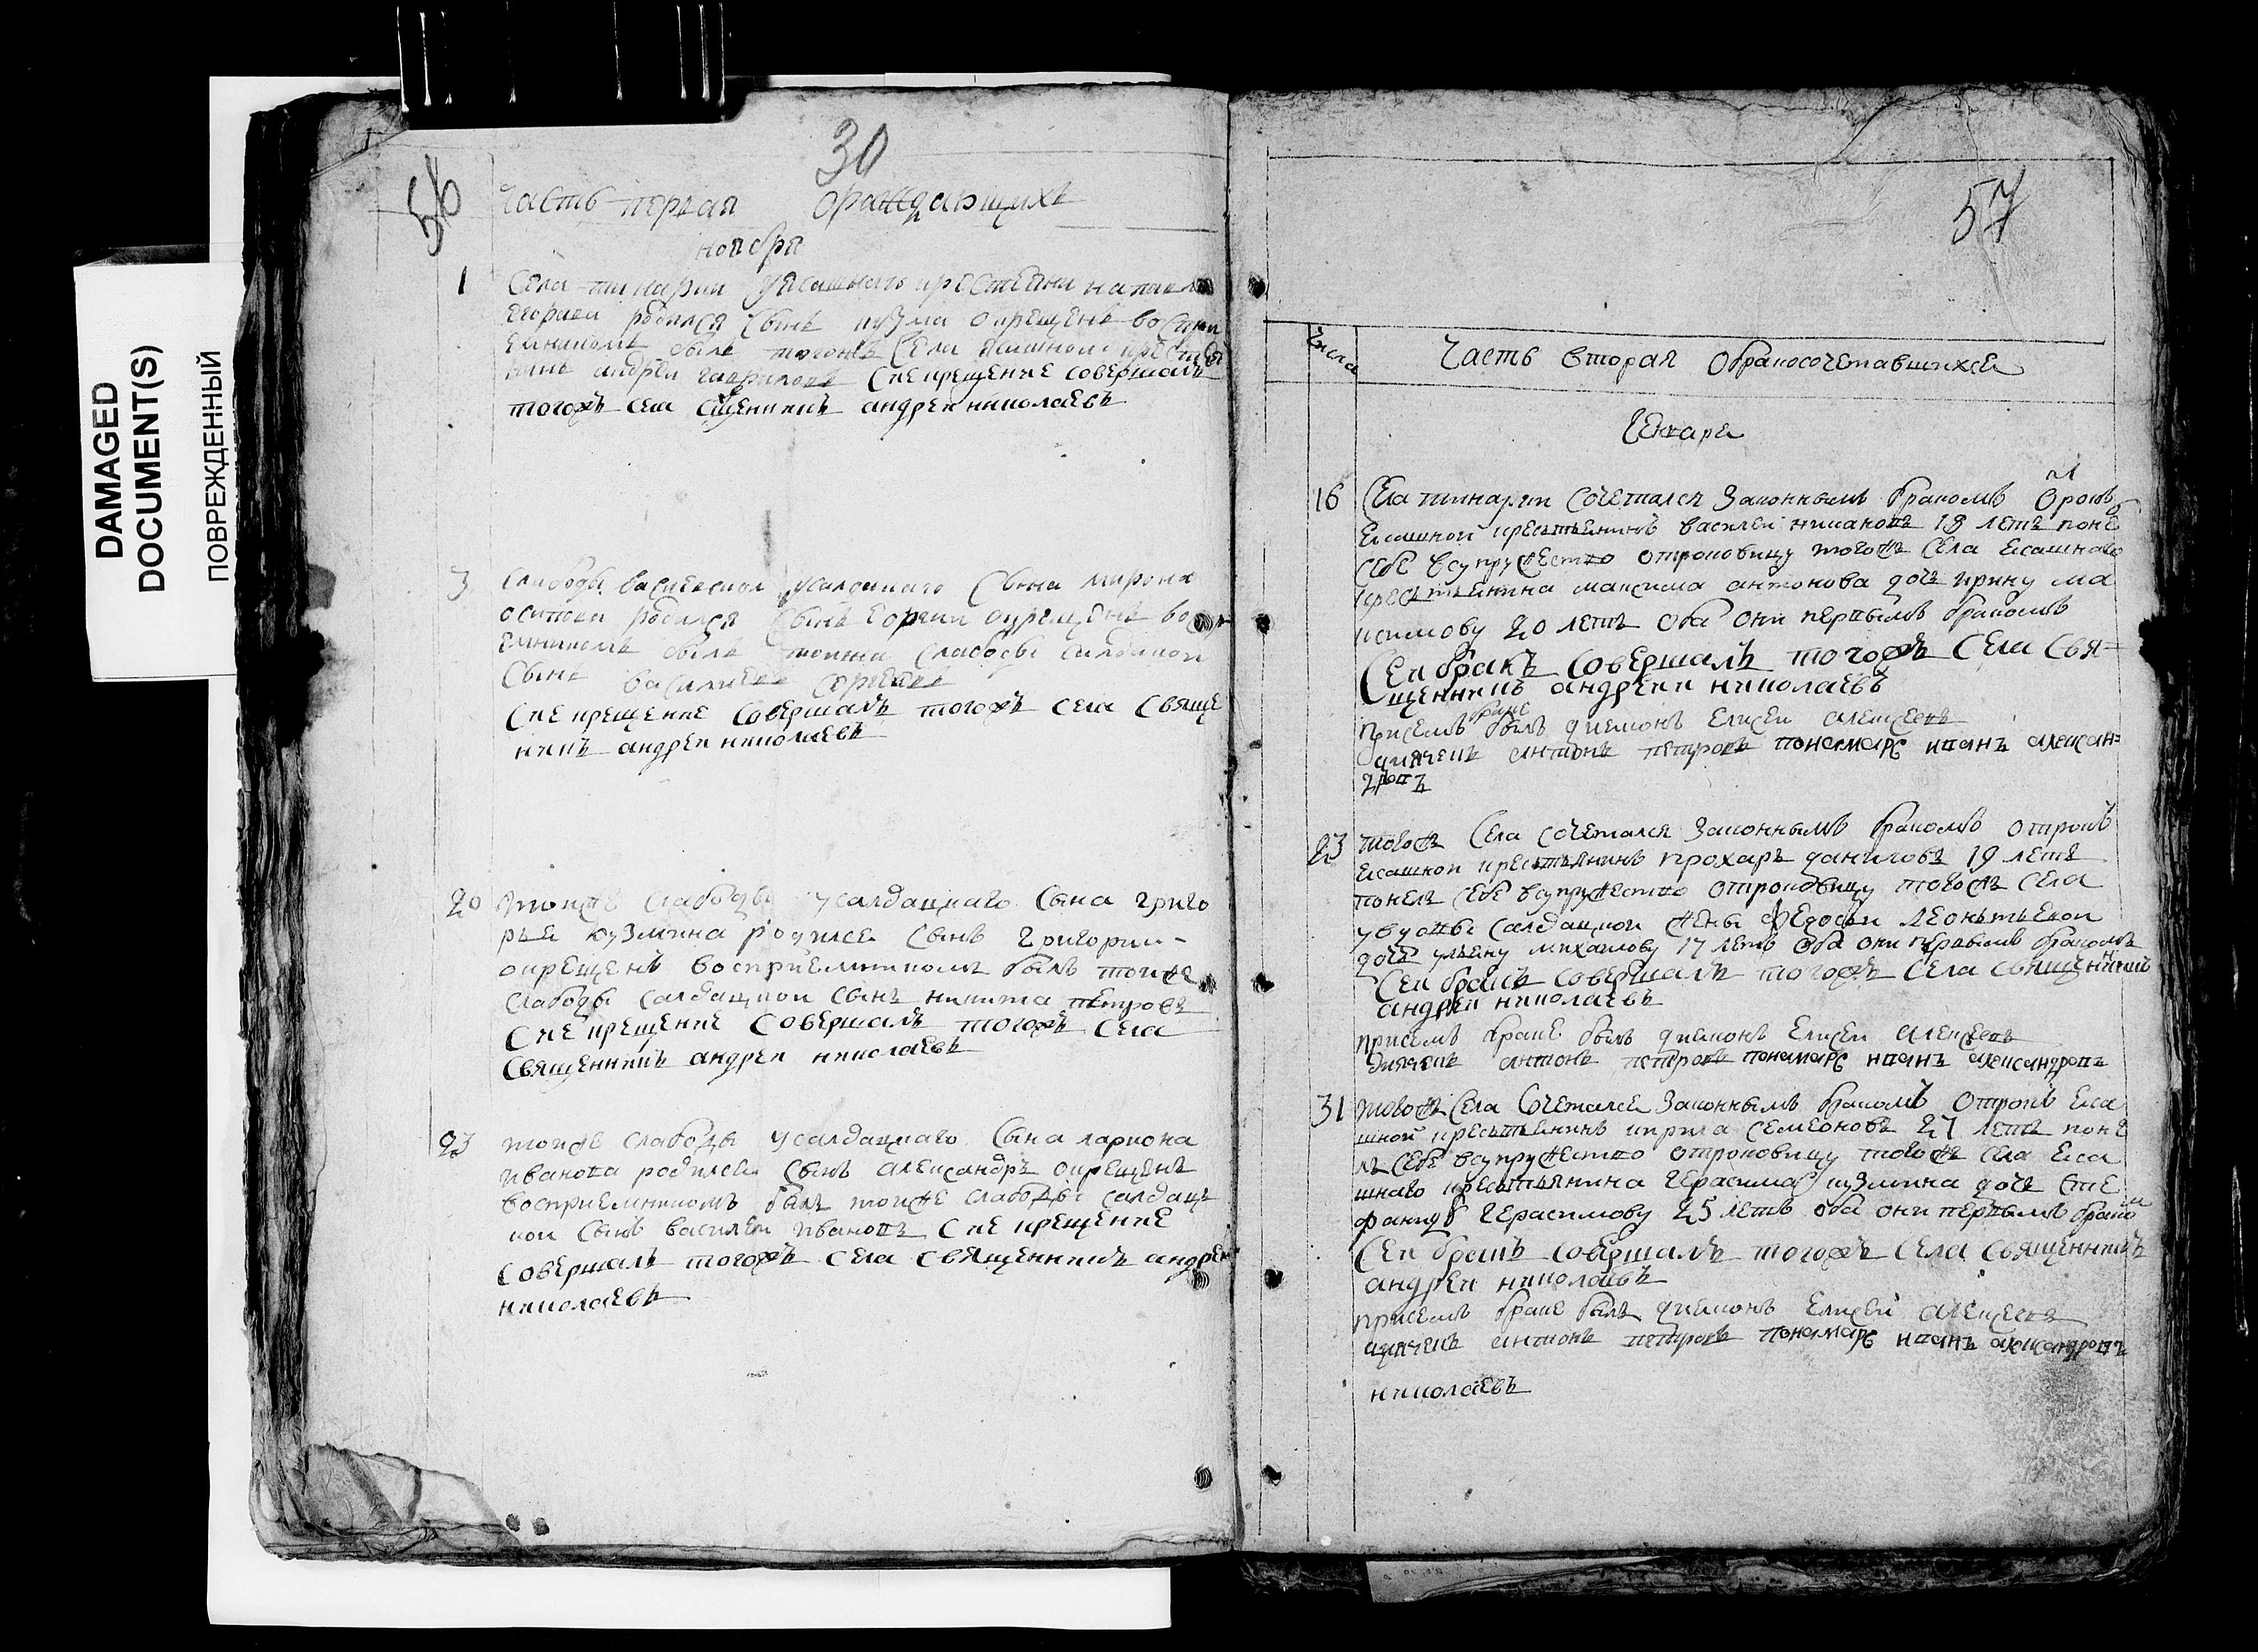 DAMAGED
DOCUMENT(S)
ПОВРЕЖДЕННЫЙ
30
56
Часть первая ораждающихъ
ноября
1 Села
егорьева родился сынъ кузма окрещенъ воспри
емникомъ былъ тогожъ села ясашной
андреи гавриловъ сие крещение совершалъ
тогожъ села сщенникъ андреи николаевъ
3 слабоды салдацкаго сына мирона
осипова родился сынъ окрещенъ воспри
емникомъ былъ тоижа слабоды салдацкои
сынъ василеи сергеевъ
Сие крещение совершалъ тогожъ села свяще
никъ андреи николаевъ
20 тоиже слабоды усалдацкаго сына григо
рья кузмина родилсе сынъ григории
окрещенъ восприемникомъ былъ тоиже
слабоды салдацкои сынъ никита петровъ
Сие крещение совершалъ тогожъ села
священникъ андреи николаевъ
23 тоиже слабоды усалдацкаго сына лариона
иванова родилсе сынъ александръ окрещенъ
восприемникомъ былъ тоиже слабоды салдац
кои сынъ василеи ивановъ сие крещение
совершалъ тогожъ села священникъ андреи
николаевъ
57
Числа
Часть вторая обракосочетавшихсе
Генваря
16 Села сочетался законнымъ бракомъ отрокъ
ясашной крестьянинъ василеи 18 летъ поне
себе всупружество отроковицу тогожъ села ясашнаго
крестьянина максима антонова дочь ирину ма
ксимову 20 летъ оба они первымъ бракомъ
Сеи бракъ совершалъ тогожъ села свя-
щенникъ андреи николаевъ
присемъ браке былъ диемонъ елисеи алексеевъ
дьячекъ антонъ петровъ понамарь иванъ алексан-
дровъ
23 тогожъ села сочетался законнымъ бракомъ отрокъ
ясашнои крестьянинъ прохаръ даниловъ 19 летъ
понелъ себе всупружество отроковицу тогожъ села
увдовы салдацкои жены федосьи леонтьевои
дочь ульяну михаилову 17 летъ оба они первымъ бракомъ
Сеи бракъ совершалъ тогожъ села священникъ
андреи николаевъ
присемъ браке былъ диемонъ елисеи алексеевъ
дьячекъ антонъ петровъ понамарь иванъ александровъ
31 тогожъ села сочеталсе законнымъ бракомъ отрокъ яса
шной крестьянинъ кирила семеоновъ 27 летъ поне
лъ себе всупружество отроковицу тогожъ села яса
шнаго крестьянина герасима кузмина дочь сте
фаниду герасимову 25 летъ оба они первымъ бракомъ
Сеи бракъ совершалъ тогожъ села священникъ
андреи николаевъ
присемъ браке былъ диемонъ елисеи алексеевъ
дьячекъ антонъ петровъ понамарь иванъ александровъ
николаевъ